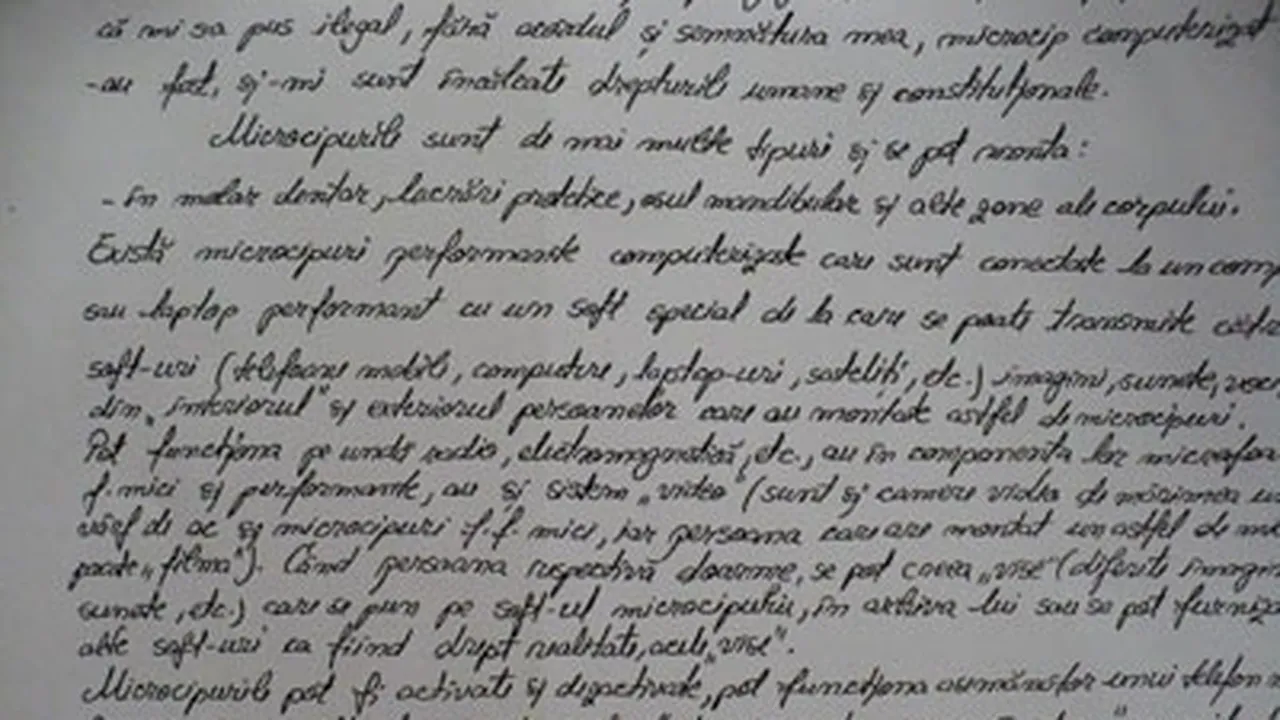 că mi sa pus ilegal, fără acordul și semnătura mea, microcip computerizat
-au fost, și-mi sunt încălcate drepturile umane și constituționale.
Microcipurile sunt de mai multe tipuri și se pot monta:
- în molar dentar, lucrări protetice, osul mandibular și alte zone ale corpului.
Există microcipuri performante computerizate care sunt conectate la un comp
sau laptop performant cu un soft special de la care se poate transmite către
soft-uri (telefoane mobile, computere, laptop-uri, sateliți, etc.) imagini, sunete, voci
din „interiorul" și exteriorul persoanelor care au montate astfel de microcipuri.
Pot funcționa pe unde radio, electromagnetică, etc., au în componenta lor microfoa
f. mici și performante, au și sistem „video" (sunt și camere video de mărimea un
vârf de ac și microcipuri f.f. mici, iar persoana care are montat un astfel de mi
poate „filma"). Când persoana respectivă doarme, se pot creea „vise" (diferite imagin
sunete, etc.) care se pun pe soft-ul microcipului, în arhiva lui sau se pot furniza
alte soft-uri ca fiind drept realitate, acele „vise".
Microcipurile pot fi activate și dezactivate, pot funcționa asemănător unui telefon